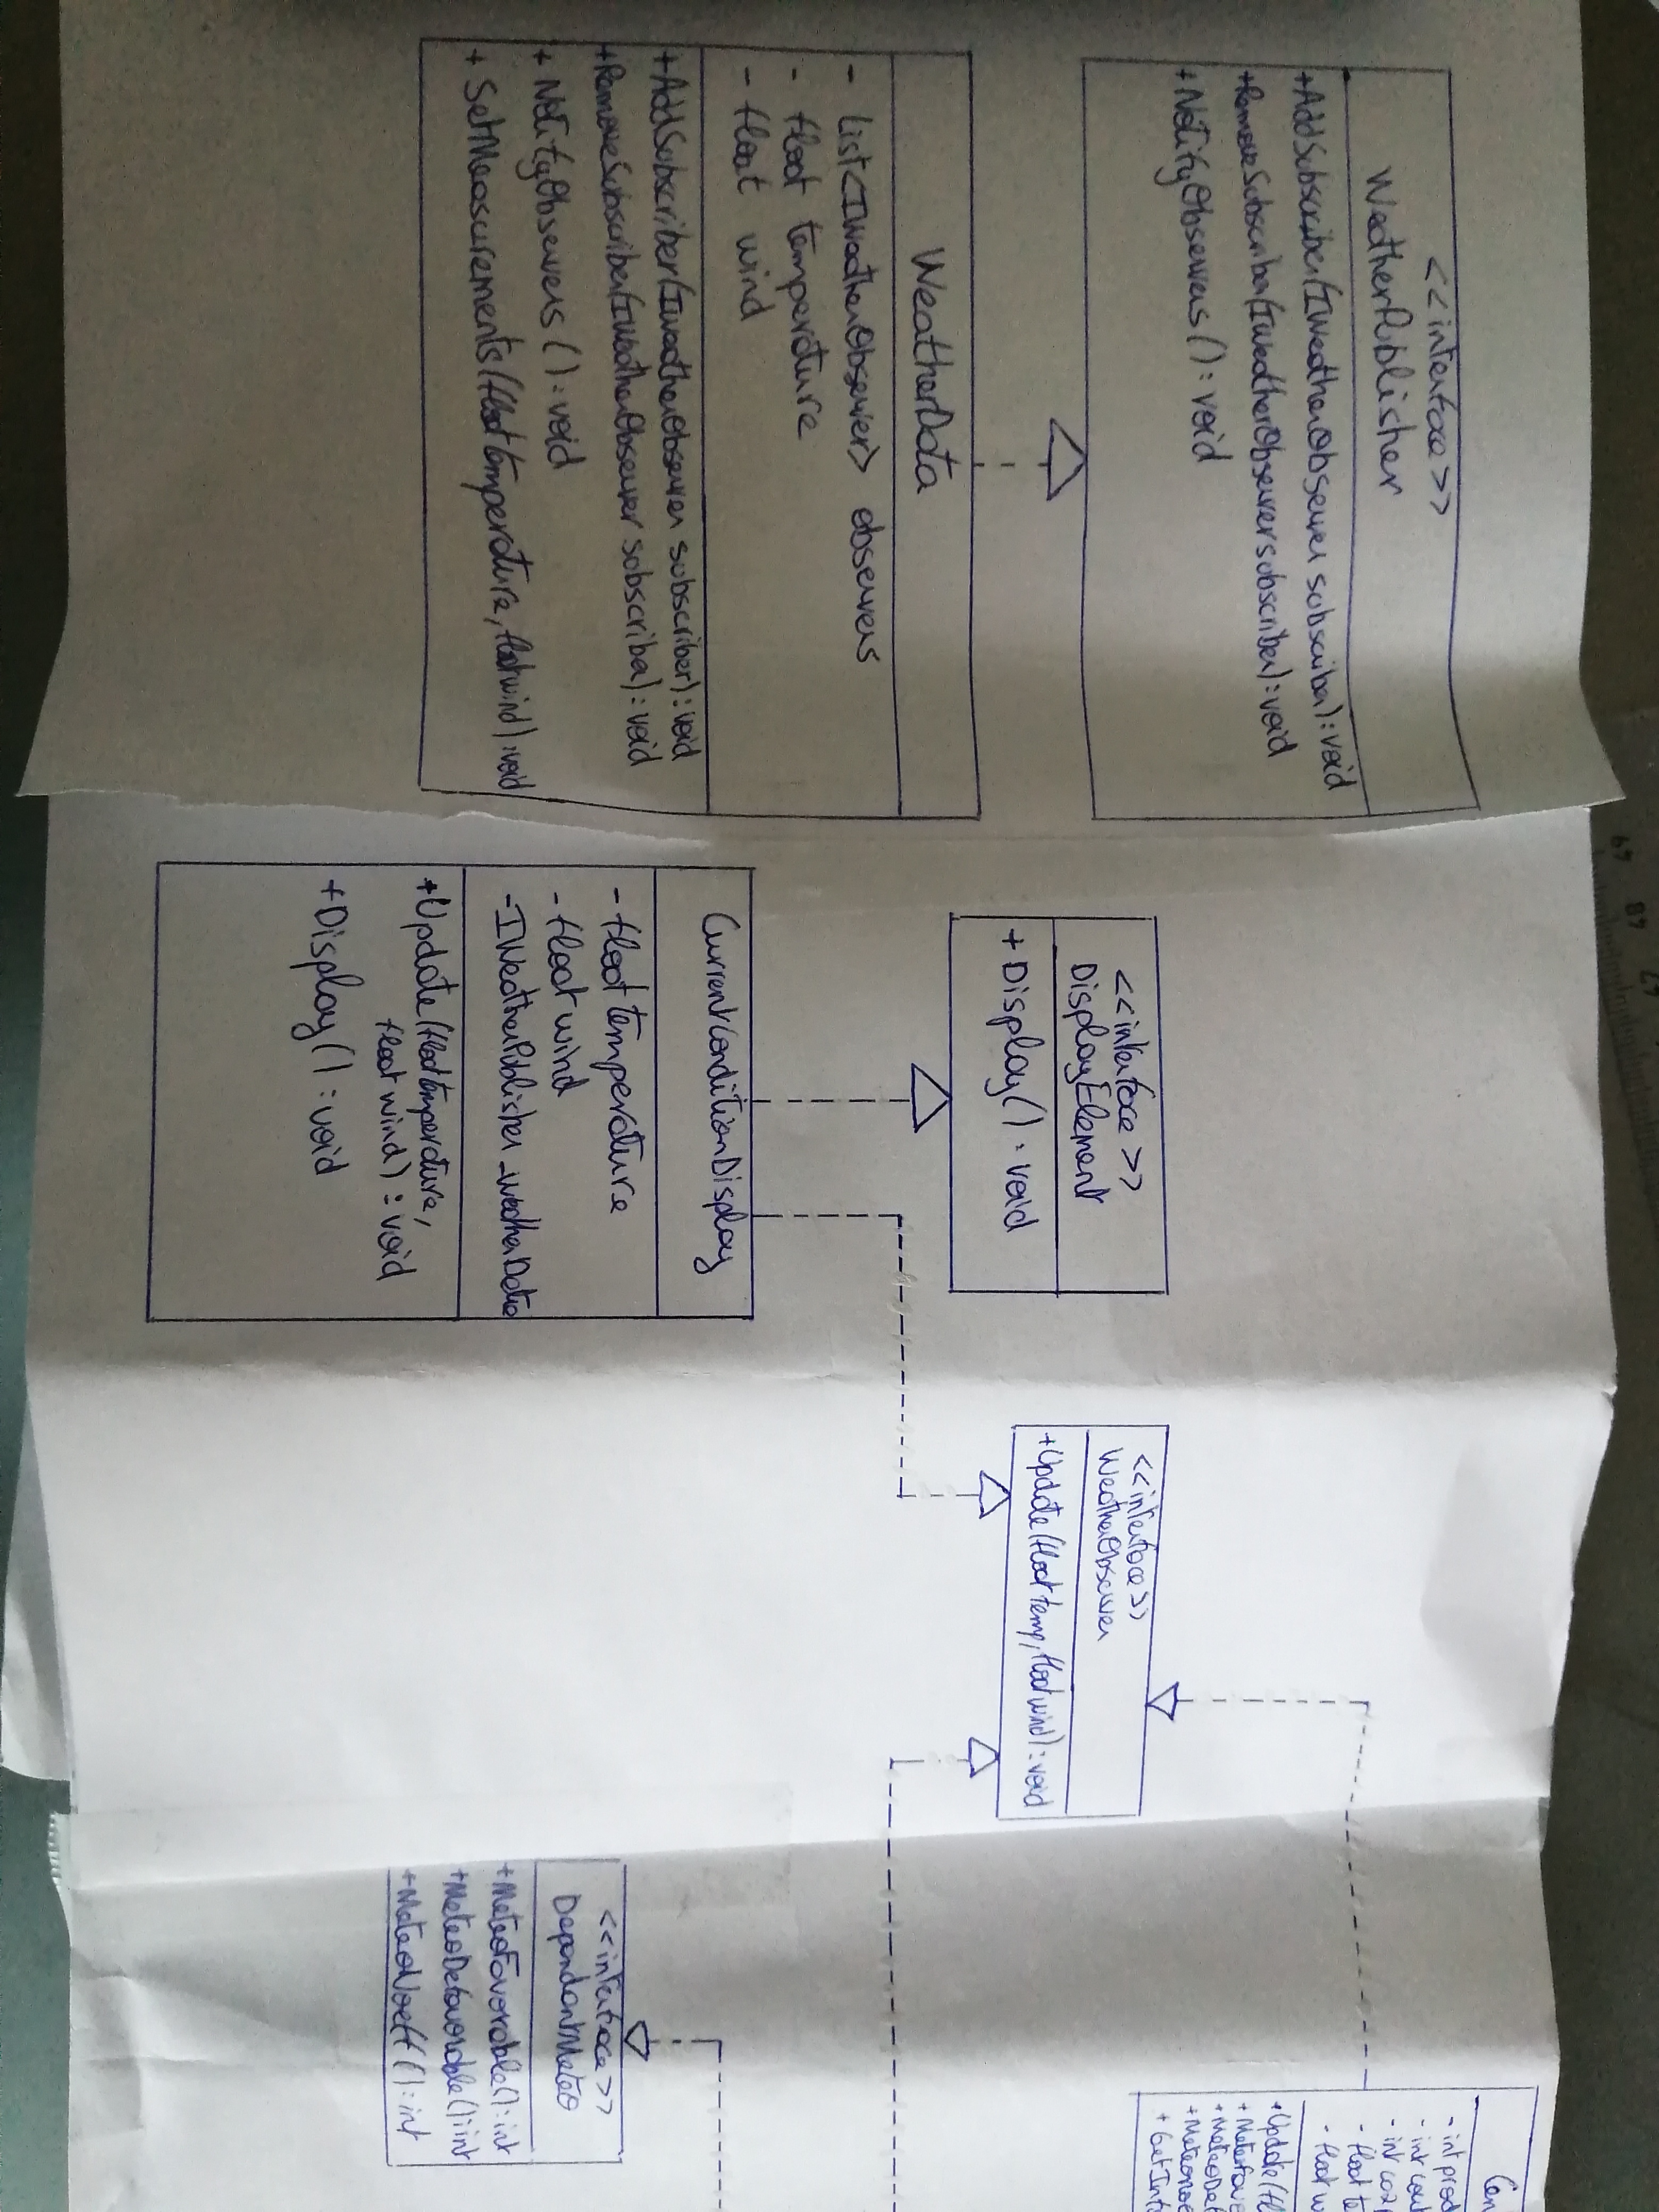 49 48 47
<<interface>>
WeatherPublisher
+AddSubscriber(IWeatherObserver subscriber): void
+RemoveSubscriber(IWeatherObserver subscriber): void
+NotifyObservers(): void
WeatherData
- List<IWeatherObserver> observers
- float temperature
- float wind
+AddSubscriber(IWeatherObserver subscriber): void
+RemoveSubscriber(IWeatherObserver subscriber): void
+ NotifyObservers(): void
+ SetMeasurements(float temperature, float wind): void
<<interface>>
DisplayElement
+ Display(): void
CurrentConditionDisplay
- float temperature
- float wind
- IWeatherPublisher _weatherData
+Update(float temperature,
float wind): void
+Display(): void
<<interface>>
WeatherObserver
+Update(float temp, float wind): void
<<interface>>
DependantMeteo
+MeteoFavorable(): int
+MeteoDefavorable(): int
+MeteoNoeff(): int
Cen
- int prod
- int cout
- int co2p
- float te
- float w
+Update(fl
+MeteoFavo
+MeteoDef
+MeteoNoe
+ GetInfo